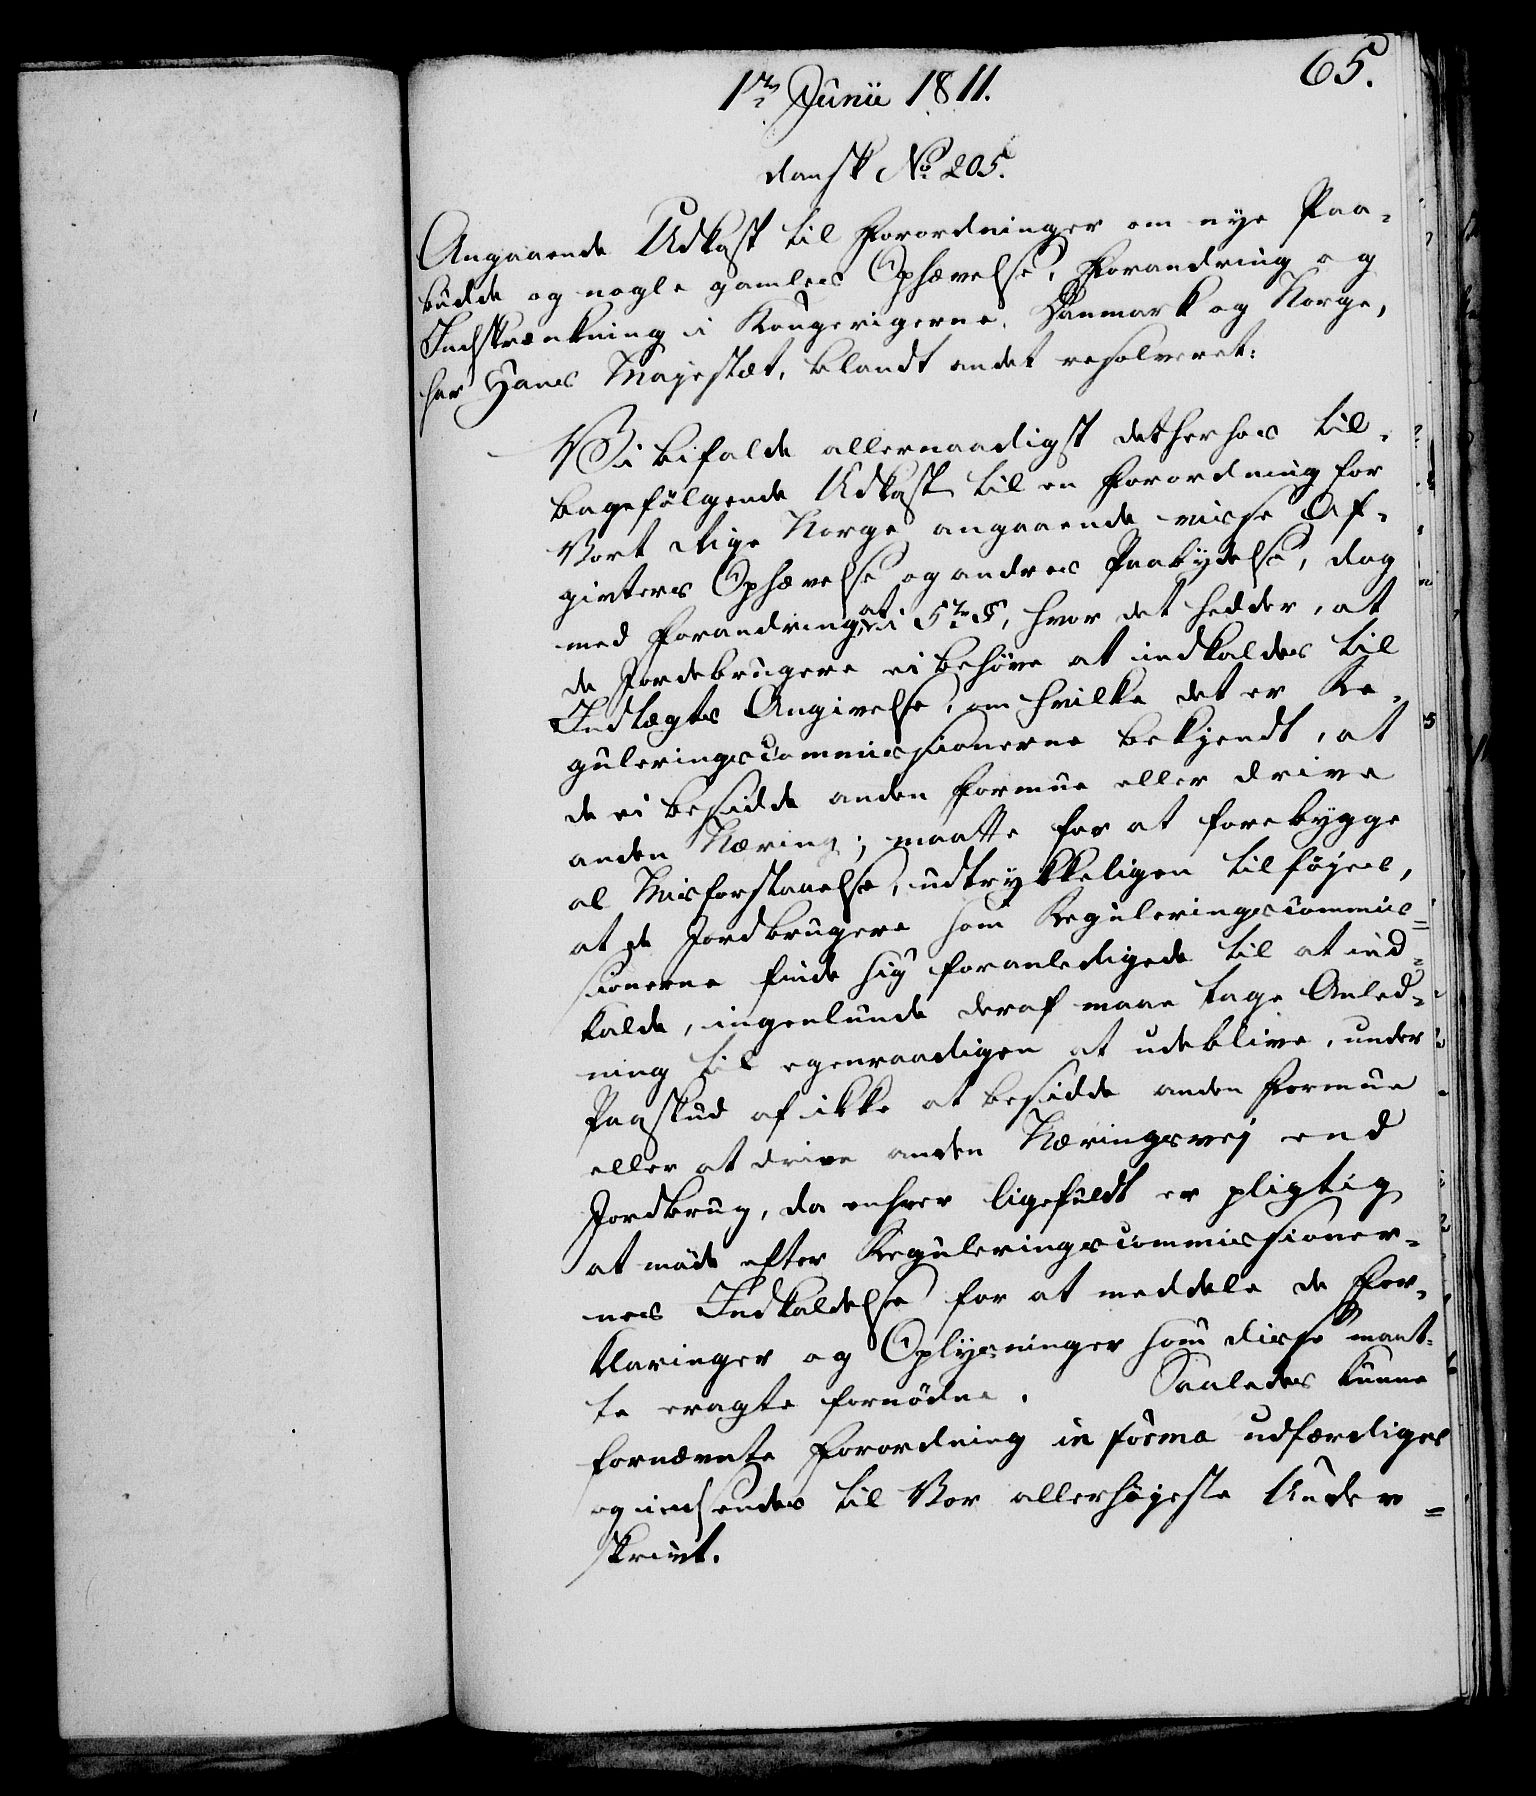 65.
1ste Junii 1811.
dansk No 205.
Angaaende Udkast til Forordninger om nye Paa-
budde og nogle gamles Ophævelse, Forandring og
Indskrænkning i Kongerigerne Danmark og Norge,
har Hans Majestæt, blandt andet resolveret:
Vi bifalde allernaadigst det herhos til-
bagefølgende Udkast til en Forordning for
Vort Rige Norge angaaende visse Af-
givters Ophævelse og andres Paabydelse, dog
med Forandring, at i 5te §, hvor det hedder, at
de Jordebrugere ei behøve at indkaldes til
Indtægts Angivelse, om hvilke det er Re-
guleringscommissionerne bekjendt, at
de ei besidde anden Formue eller drive
anden Næring; maatte for at forebygge
al Misforstaaelse, udtrykkeligen tilføjes,
at de Jordbrugere som Reguleringscommis-
sionerne finde sig foranledigede til at ind-
kalde, ingenlunde deraf maae tage Anled-
ning til egenraadigen at udeblive, under
Paaskud af ikke at besidde anden Formue
eller at drive anden Næringsvej end
Jordbrug, da enhver ligefuldt er pligtig
at møde efter Reguleringscommissioner-
nes Indkaldelse for at meddele de For-
klaringer og Oplysninger som disse maat-
te eragte fornødne. Saaledes kunne
fornævnte Forordning in forma udfærdiges
og indsendes til Vor allerhøjeste Under-
skrivt.